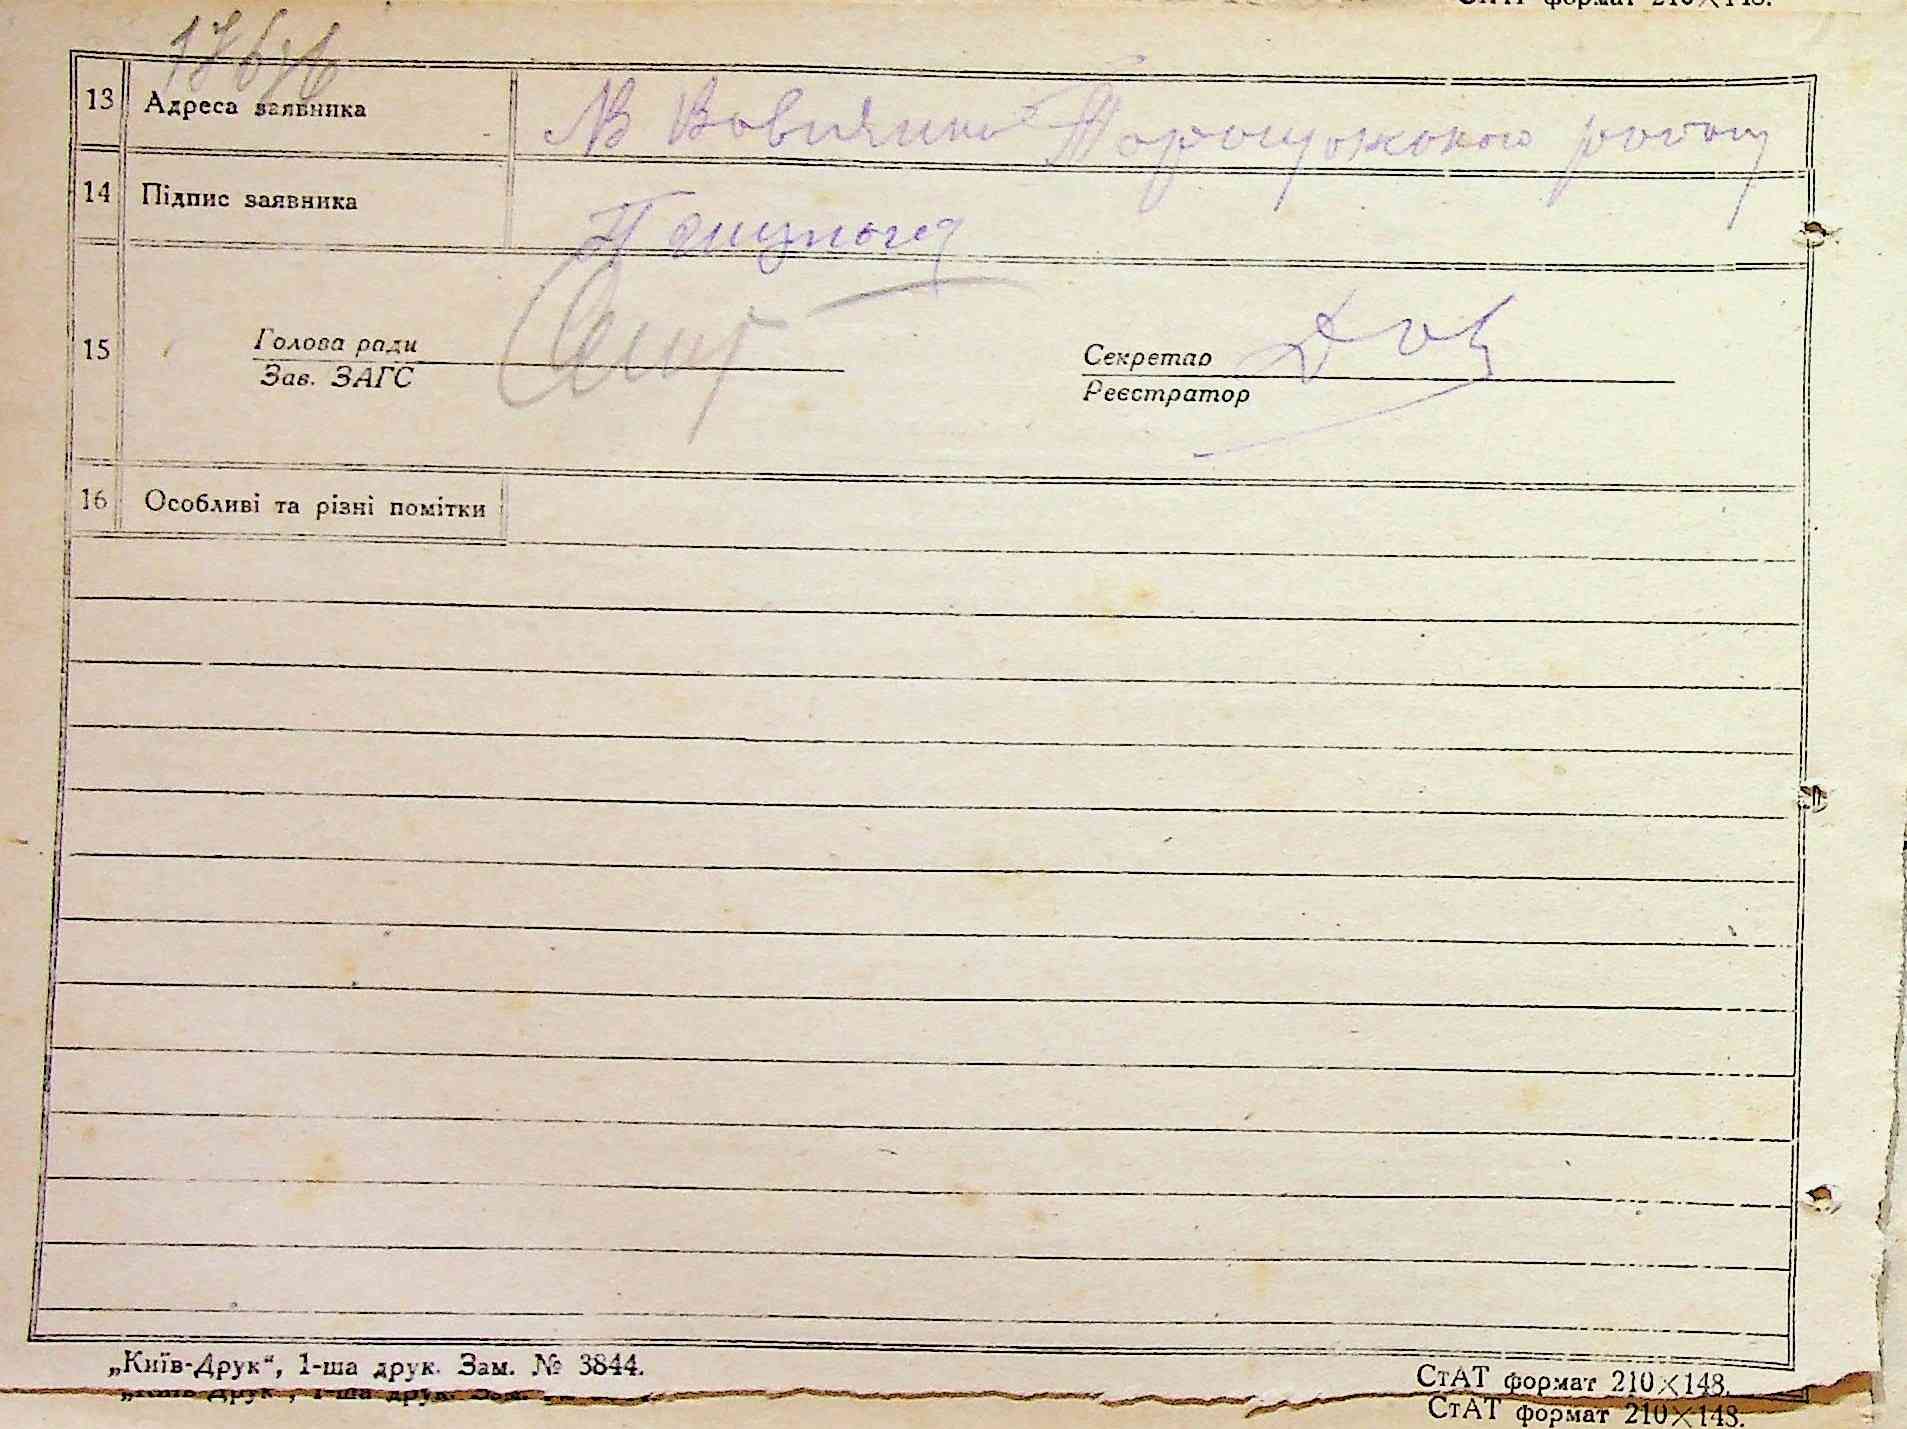 СтАТ формат 210×148.
13 Адреса заявника В Вовчянка Таращанського району
14 Підпис заявника
15 Голова ради Секретар
Зав. ЗАГС Реєстратор
16 Особливі та різні помітки
„Київ-Друк“, 1-ша друк. Зам. № 3844. СтАТ формат 210×148.
„Київ-Друк“, 1-ша друк. Зам. СтАТ формат 210×148.